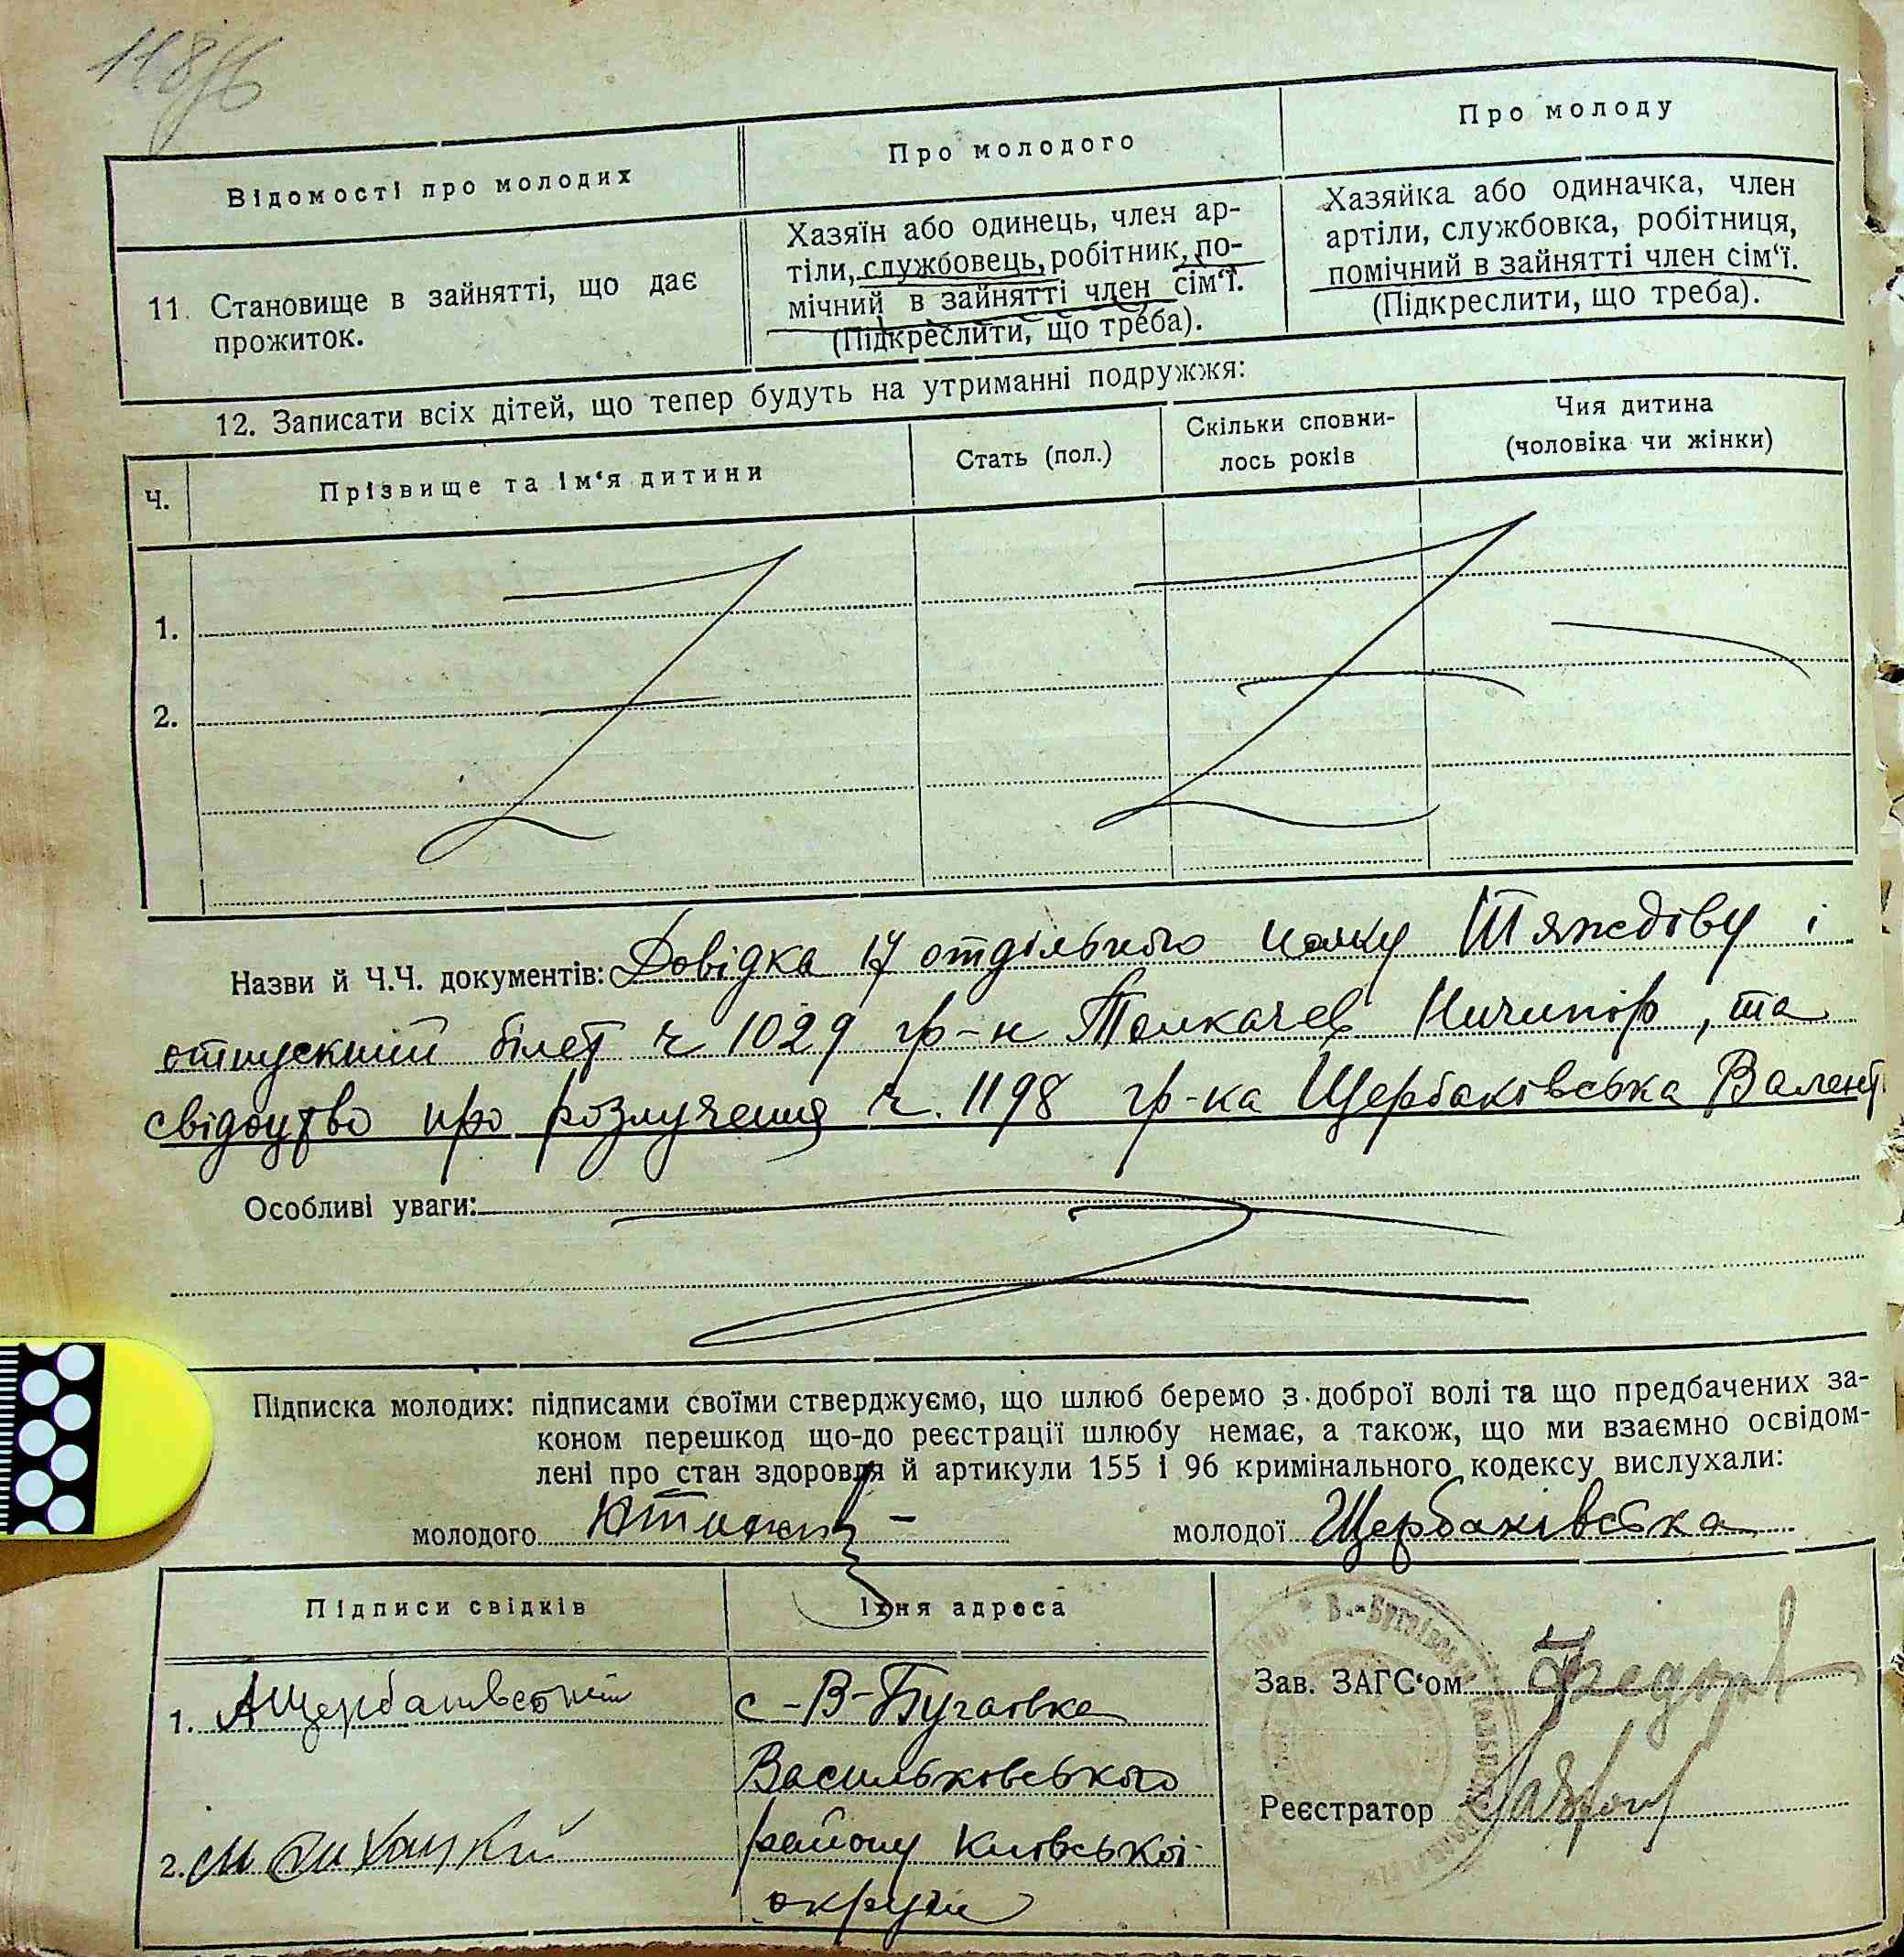 Відомості про молодих
Про молодого
Про молоду
11. Становище в зайнятті, що дає
прожиток.
Хазяїн або одинець, член ар-
тіли, службовець, робітник, по-
мічний в зайнятті член сім‘ї.
(Підкреслити, що треба).
Хазяйка або одиначка, член
артіли, службовка, робітниця,
помічний в зайнятті член сім‘ї.
(Підкреслити, що треба).
12. Записати всіх дітей, що тепер будуть на утриманні подружжя:
Ч.
Прізвище та ім‘я дитини
Стать (пол.)
Скільки сповни-
лось років
Чия дитина
(чоловіка чи жінки)
1.
2.
Назви й Ч.Ч. документів: Довідка 17 отдільного полку і
отпускний білет ч 1029 гр-н Толкачев Ничипір, та
свідоцтво про розлучення ч. 1198 гр-ка Щербаківська Валент.
Особливі уваги:
Підписка молодих: підписами своїми стверджуємо, що шлюб беремо з доброї волі та що предбачених за-
коном перешкод що-до реєстрації шлюбу немає, а також, що ми взаємно освідом-
лені про стан здоровля й артикули 155 і 96 кримінального кодексу вислухали:
молодого
молодої Щербаківська
Підписи свідків
Їхня адреса
1. АЩербаківський
с-В-Бугаївка
Васильковського
2.
району Київської
округи
Зав. ЗАГС‘ом
Реєстратор